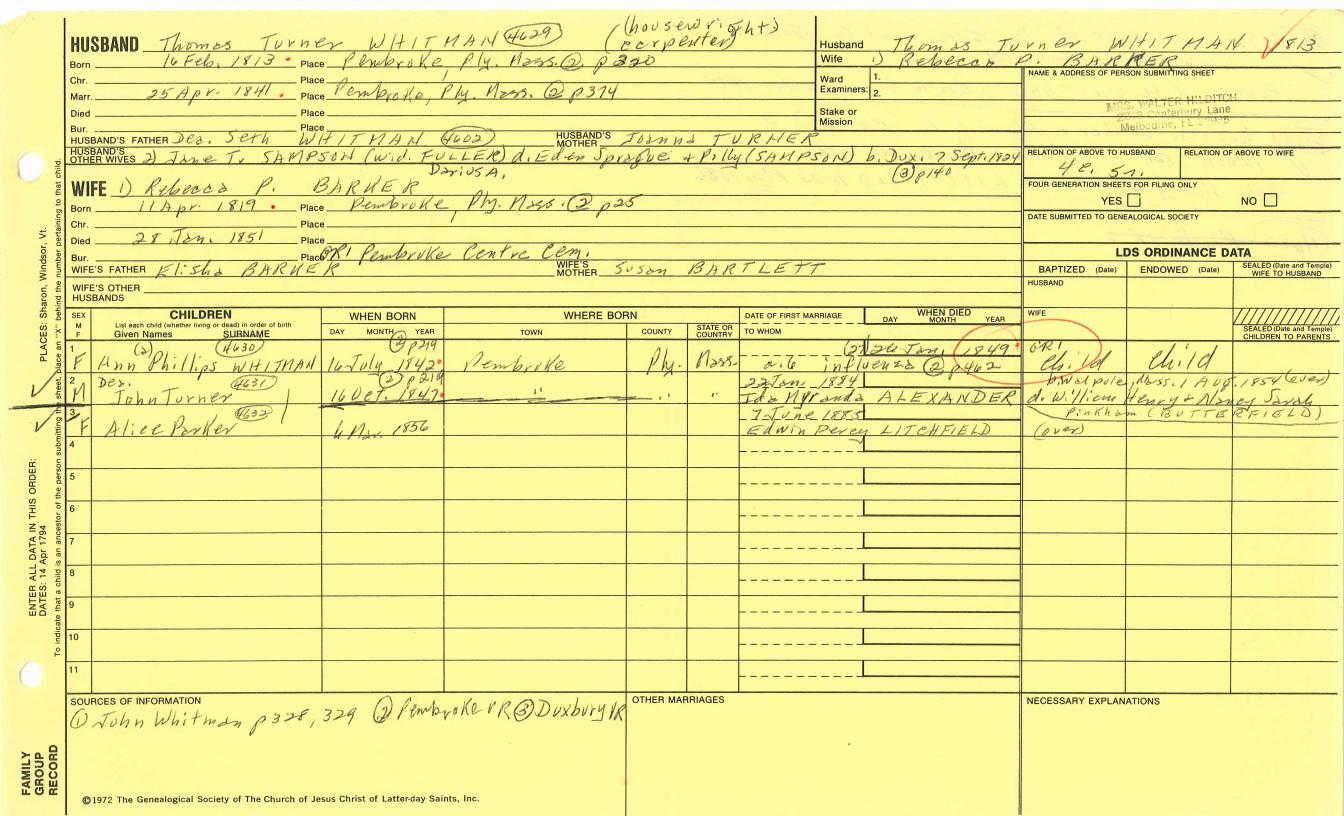 (housewright)
HUSBAND Thomas Turner WHITMAN 4629 (carpenter)
Born 16 Feb. 1813 Place Pembroke, Ply. Mass. ② p320
Chr. Place
Marr. 25 Apr. 1841 Place Pembroke, Ply. Mass. ② p374
Died Place
Bur. Place
HUSBAND'S FATHER Dea. Seth WHITMAN 4602 HUSBAND'S MOTHER Joanna TURNER
HUSBAND'S OTHER WIVES 2) Jane T. SAMPSON (wid. FULLER) d. Eden Sprague + Polly (SAMPSON) b. Dux. 7 Sept. 1824
Darius A. ③ p140
WIFE 1) Rebecca P. BARKER
Born 11 Apr. 1819 Place Pembroke, Ply. Mass. ② p25
Chr. Place
Died 28 Jan. 1851 Place
Bur. Place GR1 Pembroke Centre Cem.
WIFE'S FATHER Elisha BARKER WIFE'S MOTHER Susan BARTLETT
WIFE'S OTHER HUSBANDS
Husband Thomas Turner WHITMAN 1813
Wife 1) Rebecca P. BARKER
Ward Examiners: 1.
2.
Stake or Mission
NAME & ADDRESS OF PERSON SUBMITTING SHEET
MRS. WALTER HILDITCH
Canterbury Lane
Melbourne, FL
RELATION OF ABOVE TO HUSBAND RELATION OF ABOVE TO WIFE
FOUR GENERATION SHEETS FOR FILING ONLY
YES NO
DATE SUBMITTED TO GENEALOGICAL SOCIETY
LDS ORDINANCE DATA
BAPTIZED (Date) ENDOWED (Date) SEALED (Date and Temple) WIFE TO HUSBAND
HUSBAND
WIFE
SEALED (Date and Temple) CHILDREN TO PARENTS
SEX M F CHILDREN WHEN BORN WHERE BORN DATE OF FIRST MARRIAGE WHEN DIED
List each child (whether living or dead) in order of birth
Given Names SURNAME DAY MONTH YEAR TOWN COUNTY STATE OR COUNTRY TO WHOM DAY MONTH YEAR
(2) 4630 ② p219 (27) 26 Jan. 1849 GR1
1 F Ann Phillips WHITMAN 16 July 1842 Pembroke Ply. Mass. a. 6 influenza ② p462 Child Child
Dea. 4631 ② p219 22 Jan. 1884 b. Walpole, Mass. 1 Aug. 1854 (over)
2 M John Turner 16 Oct. 1847 " " " Ida Myranda ALEXANDER d. William Henry + Nancy Sarah
4632 7 June 1885 Pinkham (BUTTERFIELD)
3 F Alice Parker 6 Mar. 1856 Edwin Percy LITCHFIELD (over)
4
5
6
7
8
9
10
11
SOURCES OF INFORMATION OTHER MARRIAGES NECESSARY EXPLANATIONS
① John Whitman p328, 329 ② Pembroke VR ③ Duxbury VR
©1972 The Genealogical Society of The Church of Jesus Christ of Latter-day Saints, Inc.
PLACES: Sharon, Windsor, Vt.
ENTER ALL DATA IN THIS ORDER:
DATES: 14 Apr 1794
To indicate that a child is an ancestor of the person submitting the sheet, place an "X" behind the number pertaining to that child.
FAMILY GROUP RECORD